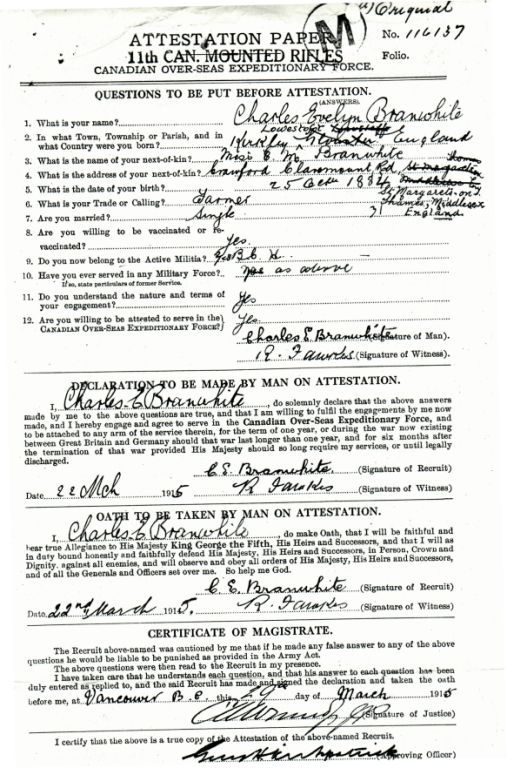 Original
M
ATTESTATION PAPER
No. 116137
11th CAN. MOUNTED RIFLES
Folio.
CANADIAN OVER-SEAS EXPEDITIONARY FORCE.
QUESTIONS TO BE PUT BEFORE ATTESTATION.
(ANSWERS)
1. What is your name? Charles Evelyn Branwhite
Lowestoft
2. In what Town, Township or Parish, and in
what Country were you born? Kirkley England
3. What is the name of your next-of-kin? Miss E. M. Branwhite
4. What is the address of your next-of-kin? Crawford Claremount Rd
5. What is the date of your birth? 25 Octr 1884
St Margarets on
Thames, Middlesex
England
6. What is your Trade or Calling? Farmer
7. Are you married? Single
8. Are you willing to be vaccinated or re-
vaccinated? Yes.
9. Do you now belong to the Active Militia? B. C. H.
10. Have you ever served in any Military Force? as above
If so, state particulars of former Service.
11. Do you understand the nature and terms of
your engagement? Yes
12. Are you willing to be attested to serve in the
CANADIAN OVER-SEAS EXPEDITIONARY FORCE? Yes.
Charles E Branwhite (Signature of Man).
R. Fawkes (Signature of Witness).
DECLARATION TO BE MADE BY MAN ON ATTESTATION.
I, Charles E Branwhite, do solemnly declare that the above answers
made by me to the above questions are true, and that I am willing to fulfil the engagements by me now
made, and I hereby engage and agree to serve in the Canadian Over-Seas Expeditionary Force, and
to be attached to any arm of the service therein, for the term of one year, or during the war now existing
between Great Britain and Germany should that war last longer than one year, and for six months after
the termination of that war provided His Majesty should so long require my services, or until legally
discharged.
C. E. Branwhite (Signature of Recruit)
Date 22 Mch 1915 R. Fawkes (Signature of Witness)
OATH TO BE TAKEN BY MAN ON ATTESTATION.
I, Charles E Branwhite, do make Oath, that I will be faithful and
bear true Allegiance to His Majesty King George the Fifth, His Heirs and Successors, and that I will as
in duty bound honestly and faithfully defend His Majesty, His Heirs and Successors, in Person, Crown and
Dignity, against all enemies, and will observe and obey all orders of His Majesty, His Heirs and Successors,
and of all the Generals and Officers set over me. So help me God.
C. E. Branwhite (Signature of Recruit)
Date 22nd March 1915. R. Fawkes (Signature of Witness)
CERTIFICATE OF MAGISTRATE.
The Recruit above-named was cautioned by me that if he made any false answer to any of the above
questions he would be liable to be punished as provided in the Army Act.
The above questions were then read to the Recruit in my presence.
I have taken care that he understands each question, and that his answer to each question has been
duly entered as replied to, and the said Recruit has made and signed the declaration and taken the oath
before me, at Vancouver B. C. this day of March 1915
(Signature of Justice)
I certify that the above is a true copy of the Attestation of the above-named Recruit.
(Approving Officer)